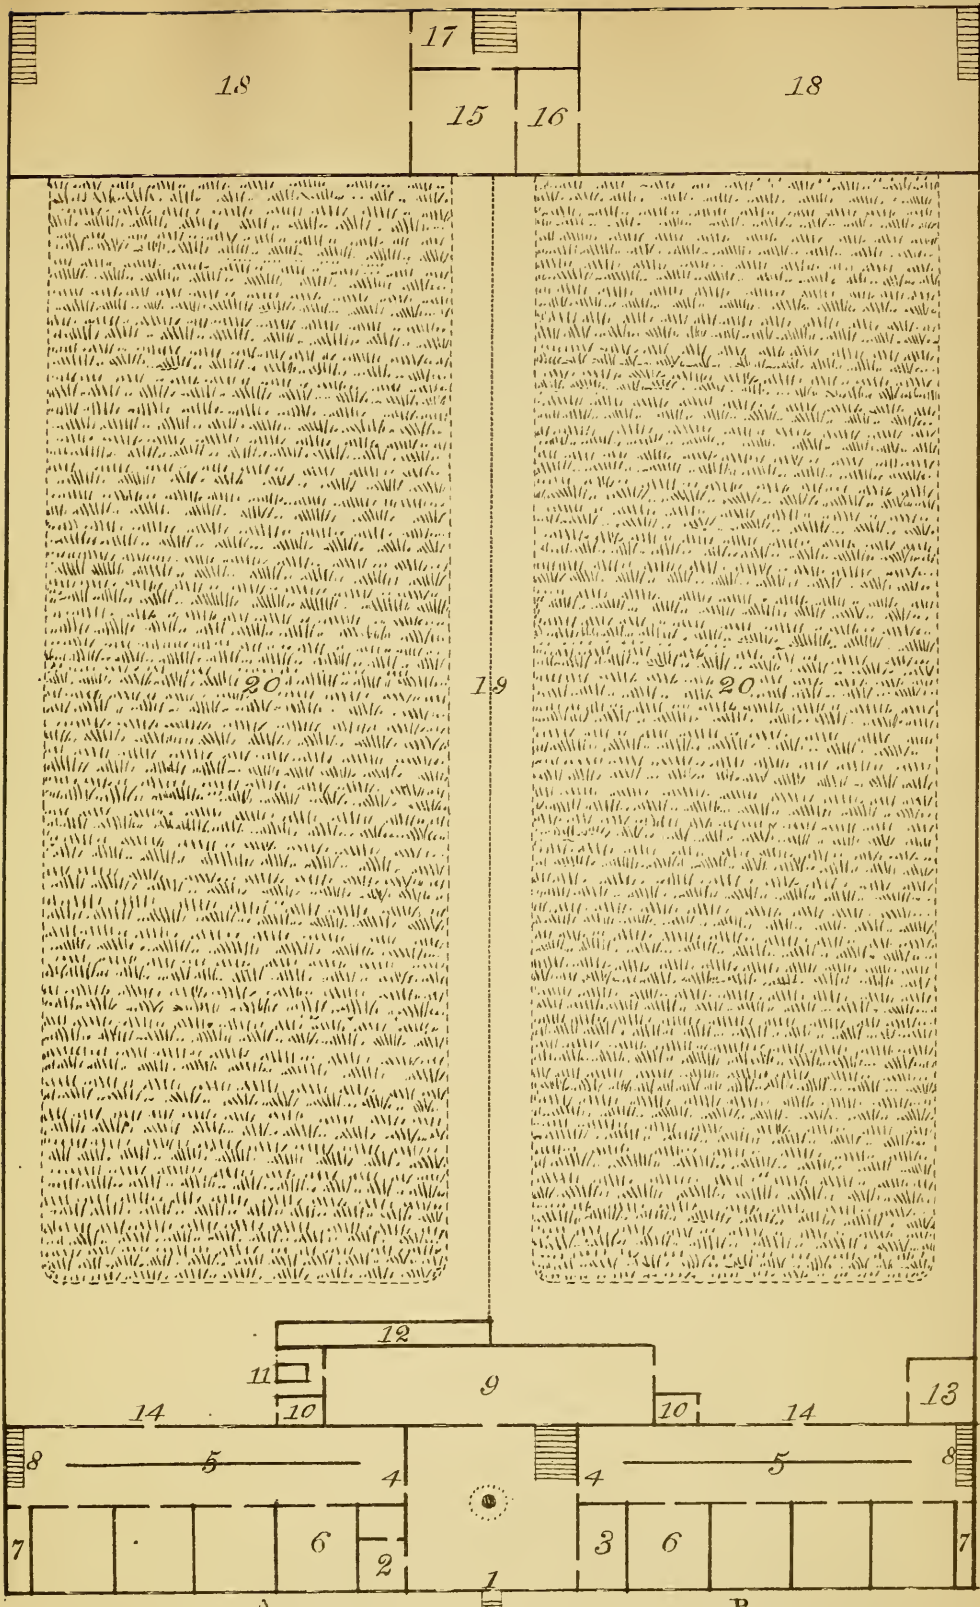 17
18 18
15 16
20 19 20
12
11
9
13
10 10
14 14
8 5 4 4 5 8
7 6 2 3 6 7
1
B